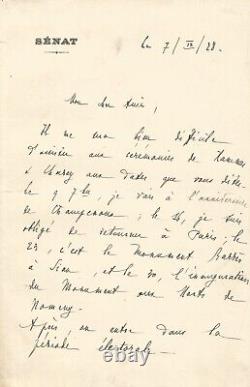 SÉNAT
le 7/IX/28.
Mon cher Amic,
Il me sera bien difficile
d'assister aux cérémonies de
& Charey aux dates que vous dites
le 9 7bre, je vais à l'anniversaire
de ; le 16, je suis
obligé de retourner à Paris; le
23, c'est le Monument Barrès
à Sion, et le 30, l'inauguration
du Monument aux Morts de
Nomeny.
Après, on entre dans la
période électorale